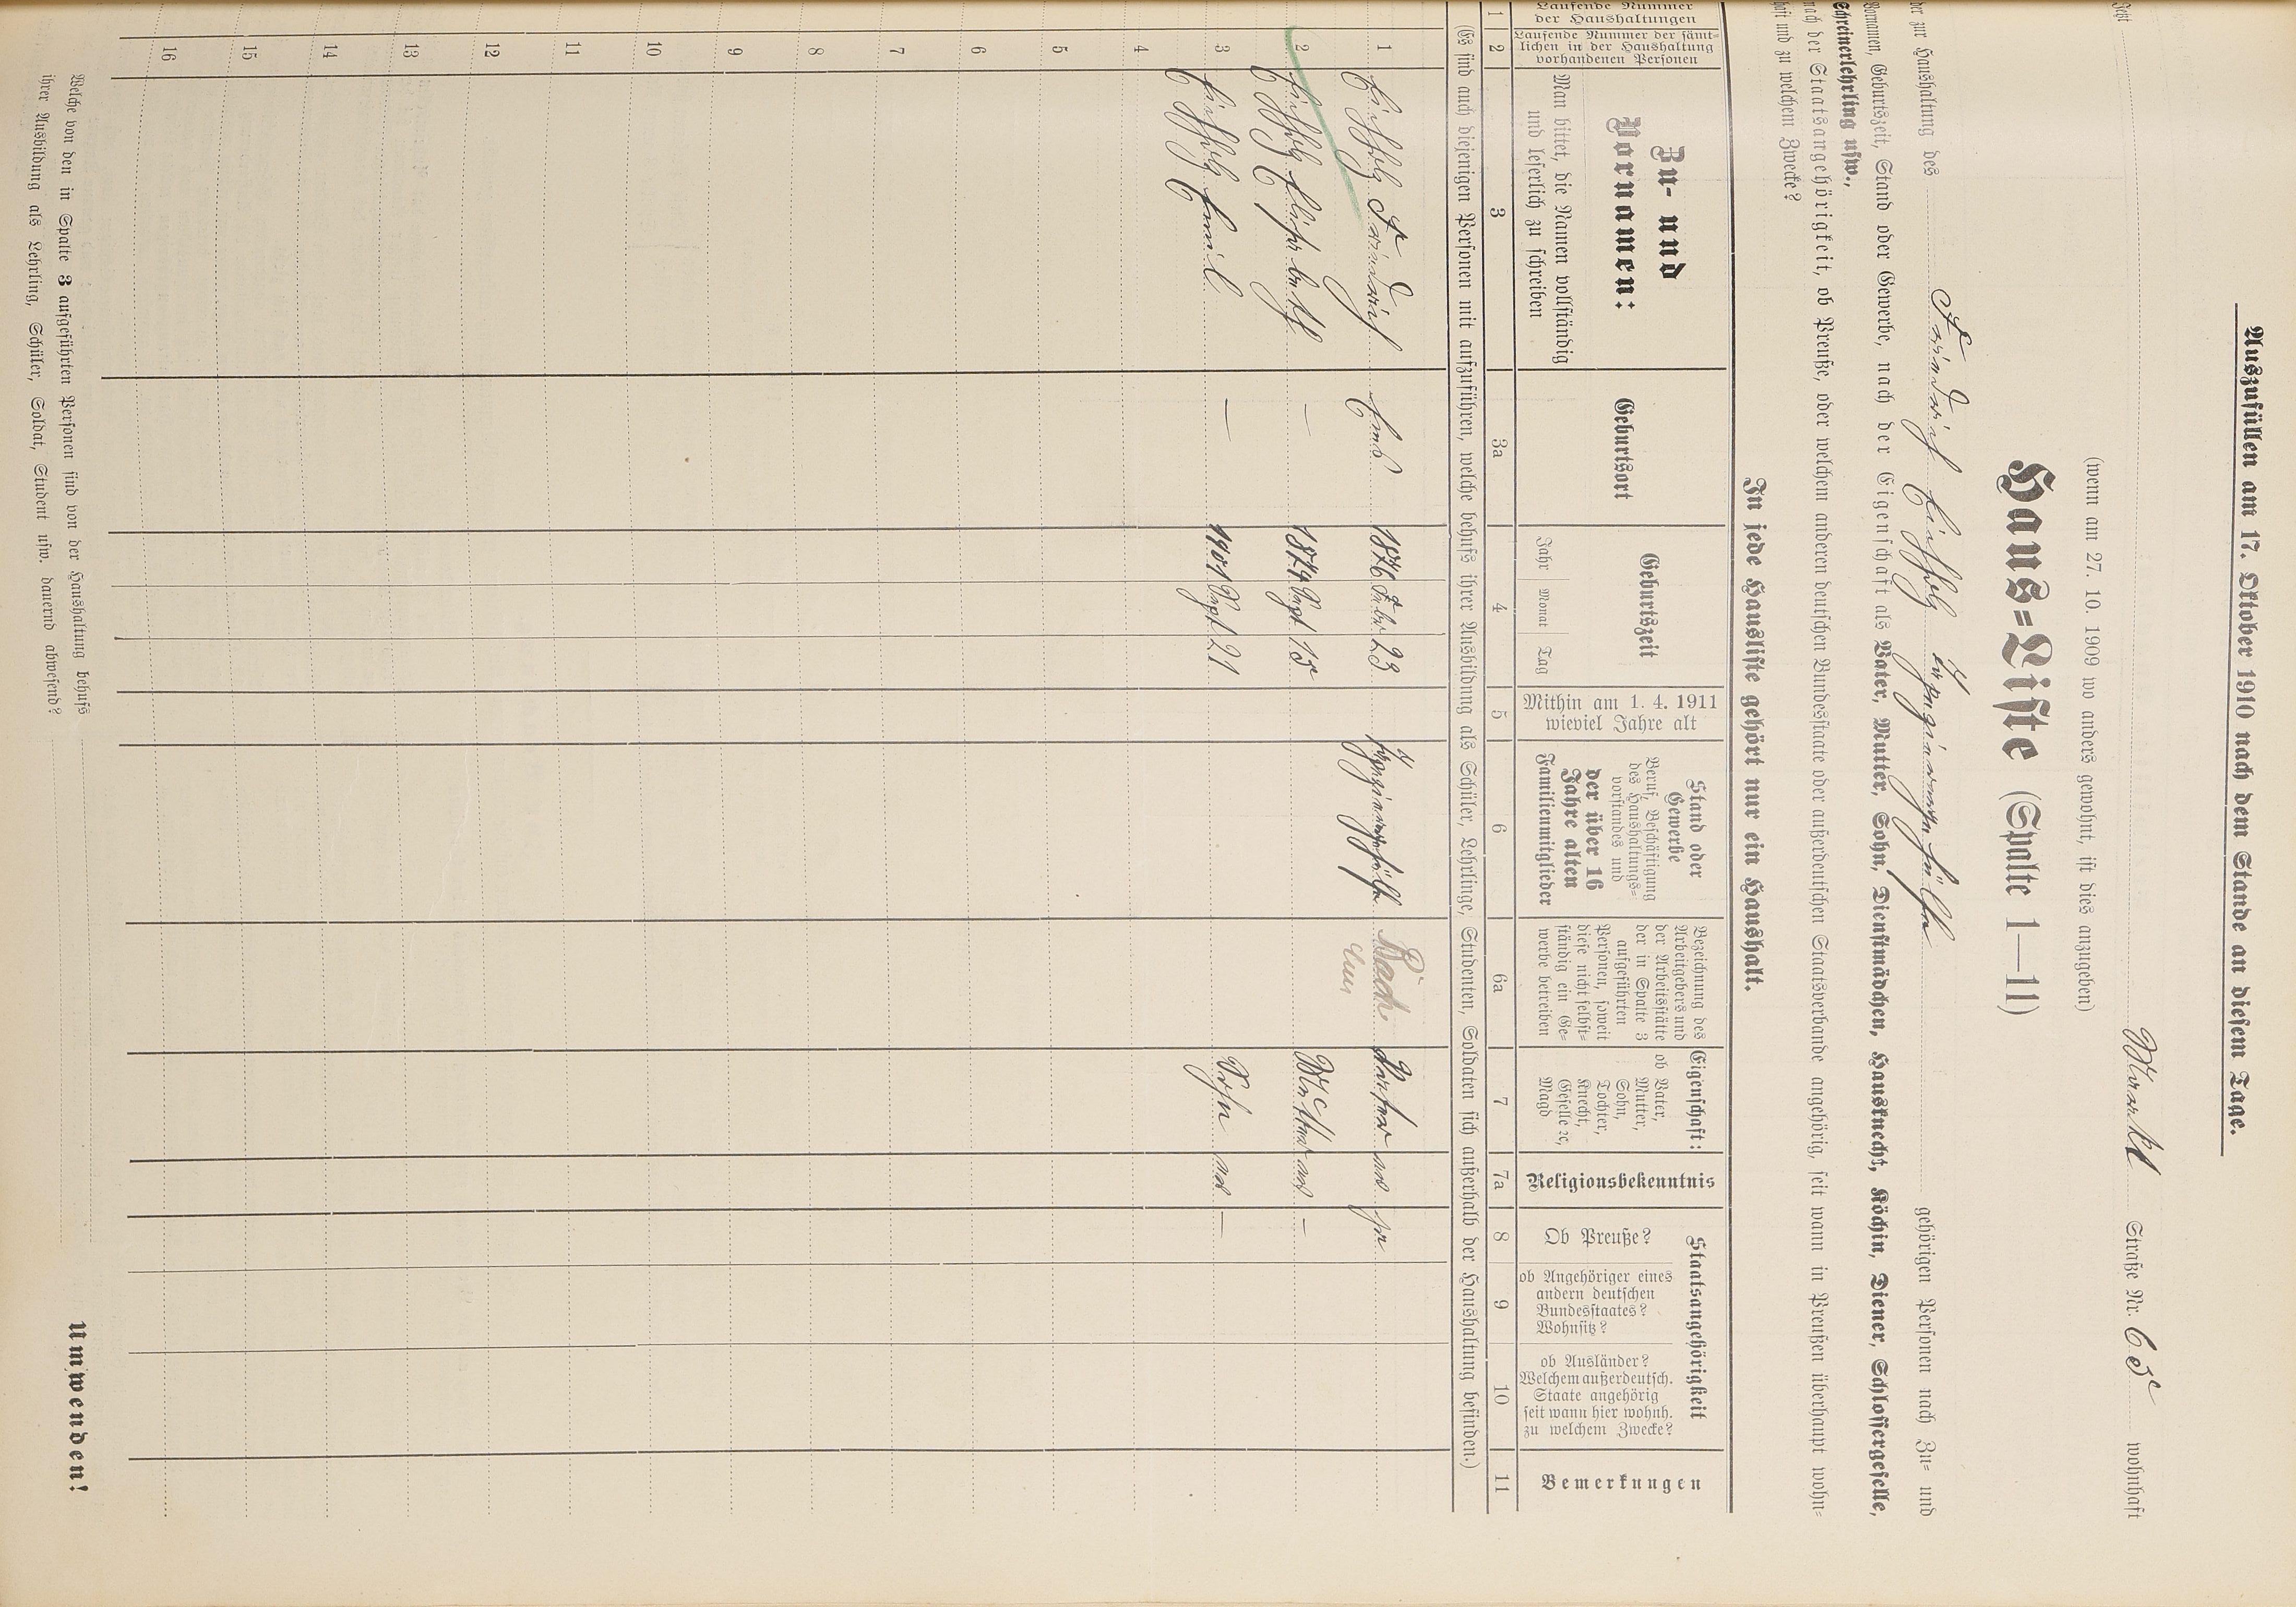 Auszufüllen am 17. Oktober 1910 nach dem Stande an diesem Tage.
Jetzt Markt Straße Nr. 65 wohnhaft
(wenn am 27. 10. 1909 wo anders gewohnt, ist dies anzugeben)
Haus=Liste (Spalte 1—11)
der zur Haushaltung des Friedrich gehörigen Personen nach Zu= und
Vornamen, Geburtszeit, Stand oder Gewerbe, nach der Eigenschaft als Vater, Mutter, Sohn, Dienstmädchen, Hausknecht, Köchin, Diener, Schlossergeselle,
Schreinerlehrling usw.,
nach der Staatsangehörigkeit, ob Preuße, oder welchem anderen deutschen Bundesstaate oder außerdeutschen Staatsverbande angehörig, seit wann in Preußen überhaupt wohn=
haft und zu welchem Zwecke?
In jede Hausliste gehört nur ein Haushalt.
Laufende Nummer
der Haushaltungen
Laufende Nummer der sämt=
lichen in der Haushaltung
vorhandenen Personen
Zu- und
Vornamen:
Man bittet, die Namen vollständig
und leserlich zu schreiben
Geburtsort
Geburtszeit
Jahr Monat Tag
Mithin am 1. 4. 1911
wieviel Jahre alt
Stand oder
Gewerbe
Beruf, Beschäftigung
des Haushaltungs=
vorstandes und
der über 16
Jahre alten
Familienmitglieder
Bezeichnung des
Arbeitgebers und
der Arbeitsstätte
der in Spalte 3
aufgeführten
Personen, soweit
diese nicht selbst=
ständig ein Ge=
werbe betreiben
Eigenschaft:
ob Vater,
Mutter,
Sohn,
Tochter,
Knecht,
Geselle ec,
Magd
Religionsbekenntnis
Staatsangehörigkeit
Ob Preuße?
ob Angehöriger eines
andern deutschen
Bundesstaates?
Wohnsitz?
ob Ausländer?
Welchem außerdeutsch.
Staate angehörig
seit wann hier wohnh.
zu welchem Zwecke?
Bemerkungen
1 2 3 3a 4 5 6 6a 7 7a 8 9 10 11
(Es sind auch diejenigen Personen mit aufzuführen, welche behufs ihrer Ausbildung als Schüler, Lehrlinge, Studenten, Soldaten sich außerhalb der Haushaltung befinden.)
1 Friedrich Ems 1876 Febr 23 Vater ev
2 Elisabeth — 1874 Sept 15 Mutter ev —
3 Emil — 1901 Sept 21 Sohn ev —
4
5
6
7
8
9
10
11
12
13
14
15
16
Welche von den in Spalte 3 aufgeführten Personen sind von der Haushaltung behufs
ihrer Ausbildung als Lehrling, Schüler, Soldat, Student usw. dauernd abwesend?
Umwenden!